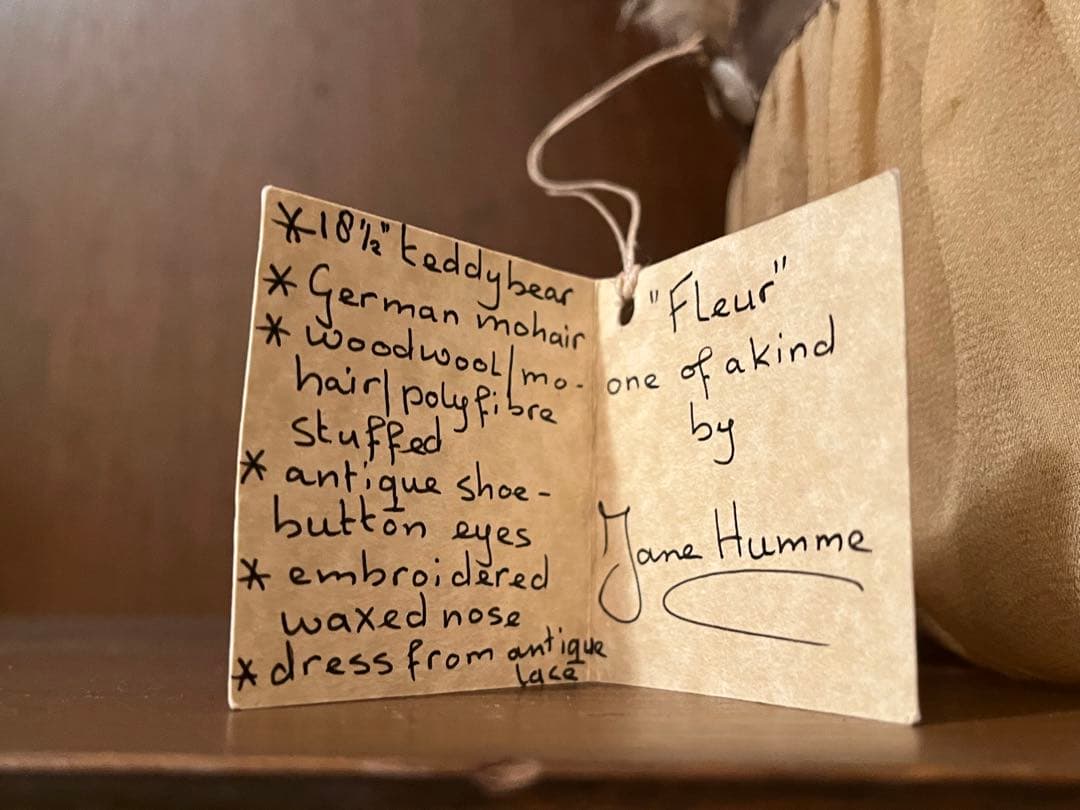 * 18½" teddybear
* German mohair
* woodwool/mo-
hair/polyfibre
stuffed
* antique shoe-
button eyes
* embroidered
waxed nose
* dress from antique
lace
"Fleur"
one of a kind
by
Jane Humme